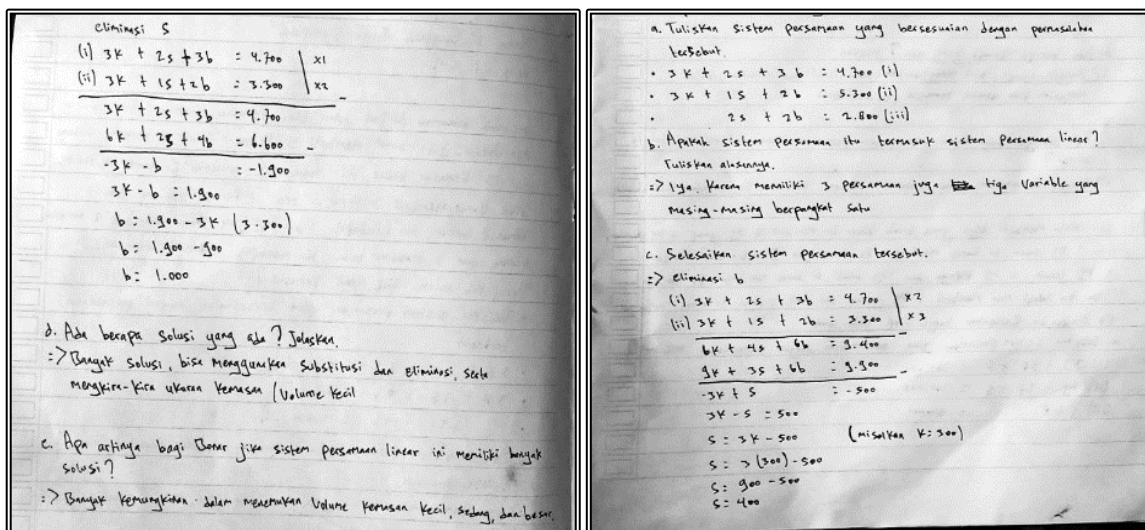 eliminasi S
(i) 3k + 2s + 3b = 4.700 | x1
(ii) 3k + 1s + 2b = 3.300 | x2
3k + 2s + 3b = 4.700
6k + 2s + 4b = 6.600 -
-3k - b = -1.900
3k - b = 1.900
b = 1.900 - 3k (3.300)
b = 1.900 - 900
b = 1.000
d. Ada berapa solusi yang ada? Jelaskan.
=> Banyak solusi, bisa menggunakan substitusi dan eliminasi, serta
mengkira-kira ukuran kemasan (volume kecil
e. Apa artinya bagi Bonar jika sistem persamaan linear ini memiliki banyak
solusi?
=> Banyak kemungkinan dalam menemukan volume kemasan kecil, sedang, dan besar.
a. Tuliskan sistem persamaan yang bersesuaian dengan permasalahan
tersebut.
• 3k + 2s + 3b = 4.700 (i)
• 3k + 1s + 2b = 5.300 (ii)
• 2s + 2b = 2.800 (iii)
b. Apakah sistem persamaan itu termasuk sistem persamaan linear?
Tuliskan alasannya.
=> Iya, karena memiliki 3 persamaan juga tiga variable yang
masing-masing berpangkat satu
c. Selesaikan sistem persamaan tersebut.
=> eliminasi b
(i) 3k + 2s + 3b = 4.700 | x2
(ii) 3k + 1s + 2b = 3.300 | x3
6k + 4s + 6b = 9.400
9k + 3s + 6b = 9.900 -
-3k + s = -500
3k - s = 500
s = 3k - 500 (misalkan k = 300)
s = 3 (300) - 500
s = 900 - 500
s = 400